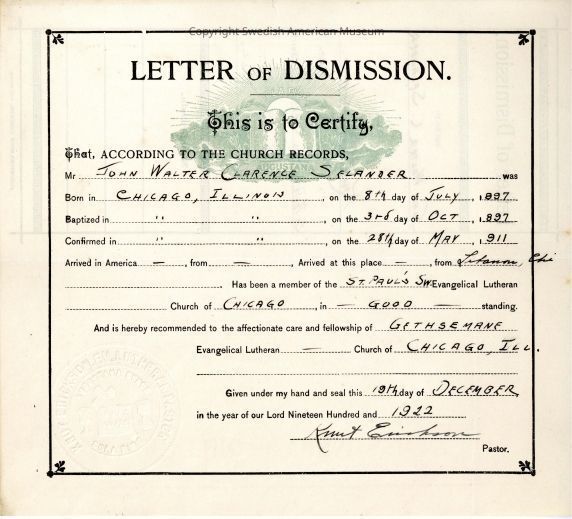 Copyright Swedish American Museum
LETTER OF DISMISSION.
This is to Certify,
That, ACCORDING TO THE CHURCH RECORDS,
Mr JOHN WALTER CLARENCE SELANDER was
Born in CHICAGO, ILLINOIS, on the 8th day of JULY, 1897
Baptized in " ", on the 3rd day of OCT, 1897
Confirmed in " ", on the 28th day of MAY, 1911
Arrived in America —, from — Arrived at this place —, from Chi
Has been a member of the ST. PAUL'S SW. Evangelical Lutheran
Church of CHICAGO, in — GOOD — standing.
And is hereby recommended to the affectionate care and fellowship of GETHSEMANE
Evangelical Lutheran — Church of CHICAGO, ILL.
Given under my hand and seal this 19th day of DECEMBER,
in the year of our Lord Nineteen Hundred and 1922
Knut Erickson
Pastor.